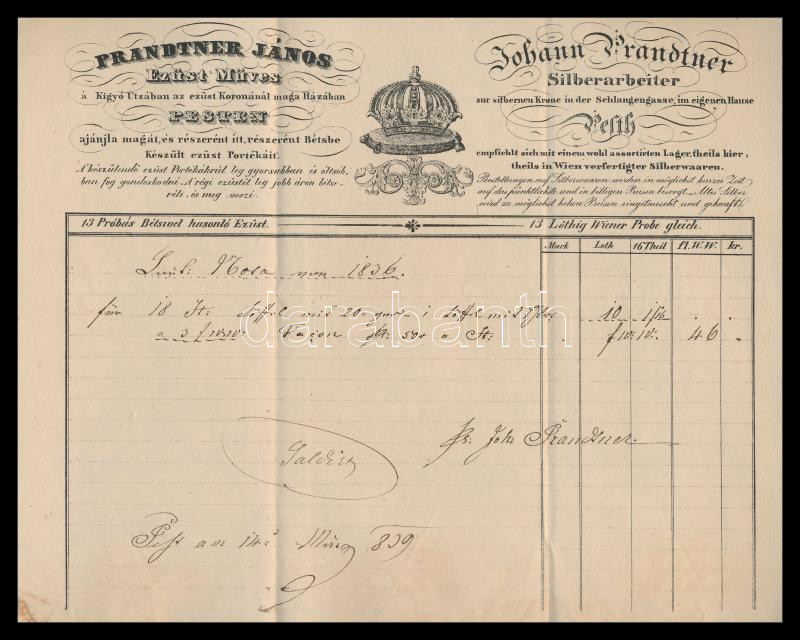 PRANDTNER JÁNOS
Ezüst Müves
á Kigyó Utzában az ezüst Koronánál maga Házában
PESTEN
ajánlja magát, és részerént itt, részerént Bétsbe
Készült ezüst Portékáit.
A készülendő ezüst Portékákrúl leg gyorsabban és óltsób-
ban fog gondoskodni. A régi ezüstöt leg jobb áron béts-
üli, és meg veszi.
Johann Prandtner
Silberarbeiter
zur silbernen Krone in der Schlangengasse, im eigenen Hause
Pesth
empfiehlt sich mit einem wohl assortirten Lager, theils hier,
theils in Wien verfertigter Silberwaaren.
Bestellungen auf Silberwaaren werden in möglichst kurzer Zeit
auf das pünktlichste und in billigen Preisen besorgt. Altes Silber
wird zu möglichst hohen Preisen eingetauscht und gekauft.
13 Próbás Bétsivel hasonló Ezüst.
13 Löthig Wiener Probe gleich.
Mark Loth 16 Theil Fl. W.W. kr.
Nota von 1836.
für 18 St: Löffel mit 1 Löffel mit 10 1/16
a 3 f Façon a St: 46
Saldirt
Joh: Prandtner
Pest am 14 März 839
darabanth